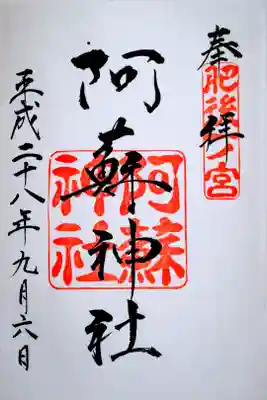 奉拝
肥後一宮
阿蘇神社
阿蘇神社
平成二十八年九月六日